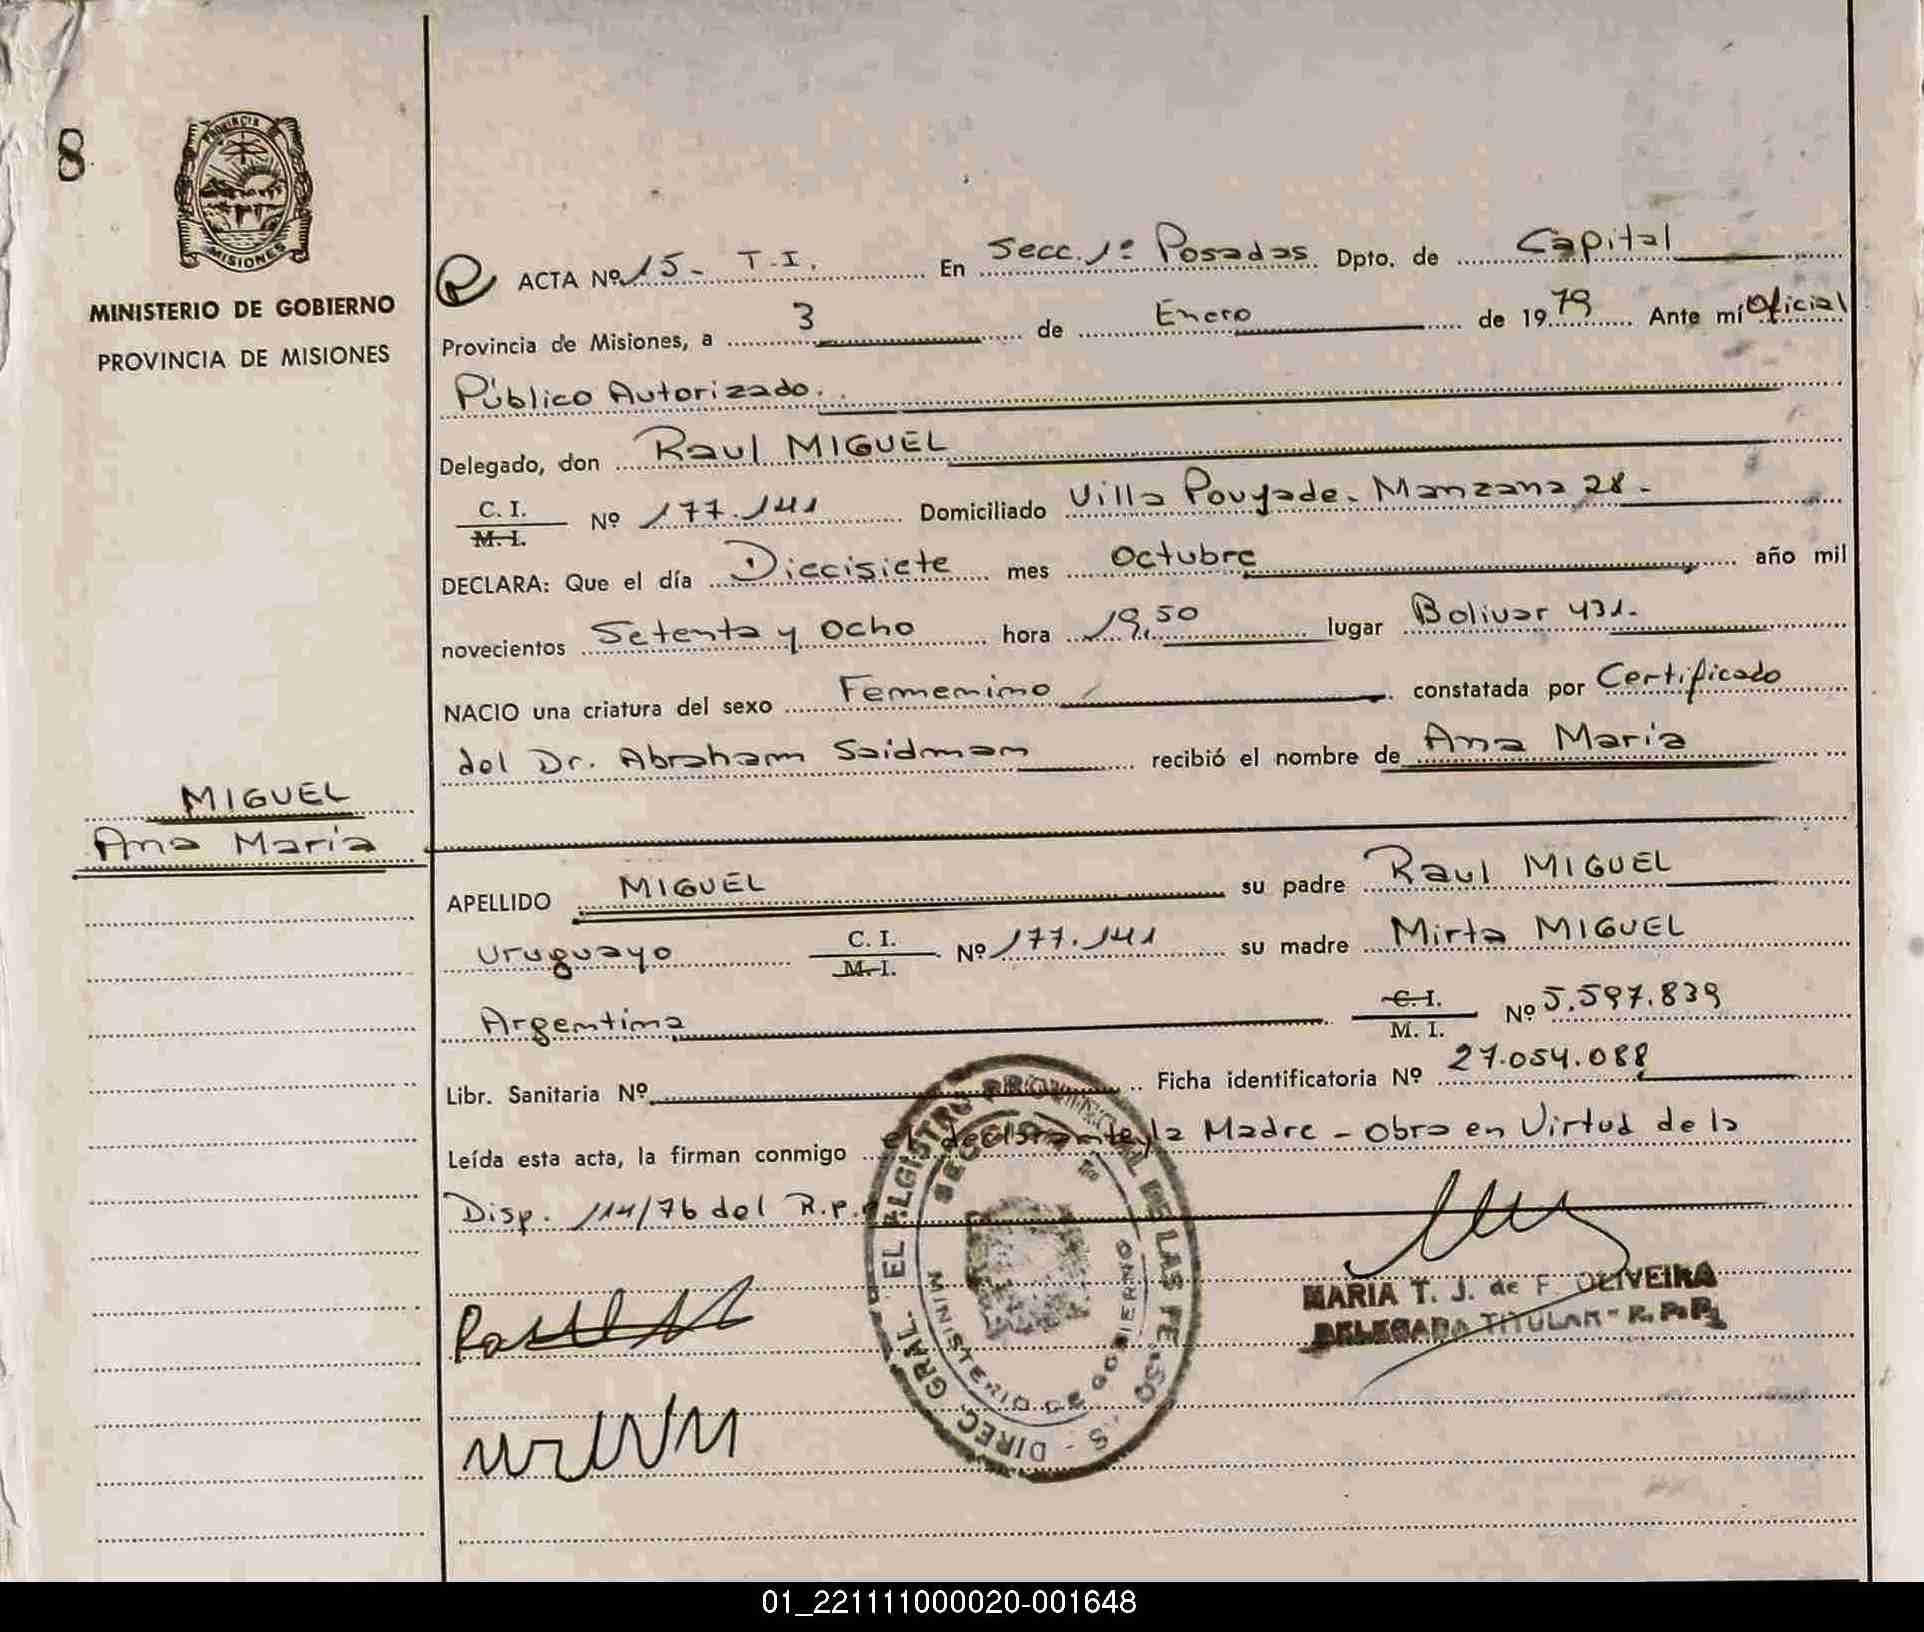 8
PROVINCIA DE
MISIONES
MINISTERIO DE GOBIERNO
PROVINCIA DE MISIONES
MIGUEL
Ana María
ACTA Nº 15 - T.I. En Secc. 1º Posadas Dpto. de Capital
Provincia de Misiones, a 3 de Enero de 1979 Ante mí Oficial
Público Autorizado.
Delegado, don Raul MIGUEL
C. I.
M. I. Nº 177.141 Domiciliado Villa Poujade - Manzana 28 -
DECLARA: Que el día Diecisiete mes Octubre año mil
novecientos Setenta y Ocho hora 19,50 lugar Bolivar 431 -
NACIO una criatura del sexo Femenino constatada por Certificado
del Dr. Abraham Saidman recibió el nombre de Ana María
APELLIDO MIGUEL su padre Raul MIGUEL
Uruguayo C. I.
M. I. Nº 177.141 su madre Mirta MIGUEL
Argentina C. I.
M. I. Nº 5.597.839
Libr. Sanitaria Nº Ficha identificatoria Nº 27.054.088
Leída esta acta, la firman conmigo el declarante y la Madre - Obra en Virtud de la
Disp. 114/76 del R.p.p
MARIA T. J. de F. OLIVEIRA
DELEGADA TITULAR - R. P. P.
DIREC. GRAL. EL REGISTRO PROVINCIAL DE LAS PERSONAS
MINISTERIO DE GOBIERNO
01_221111000020-001648